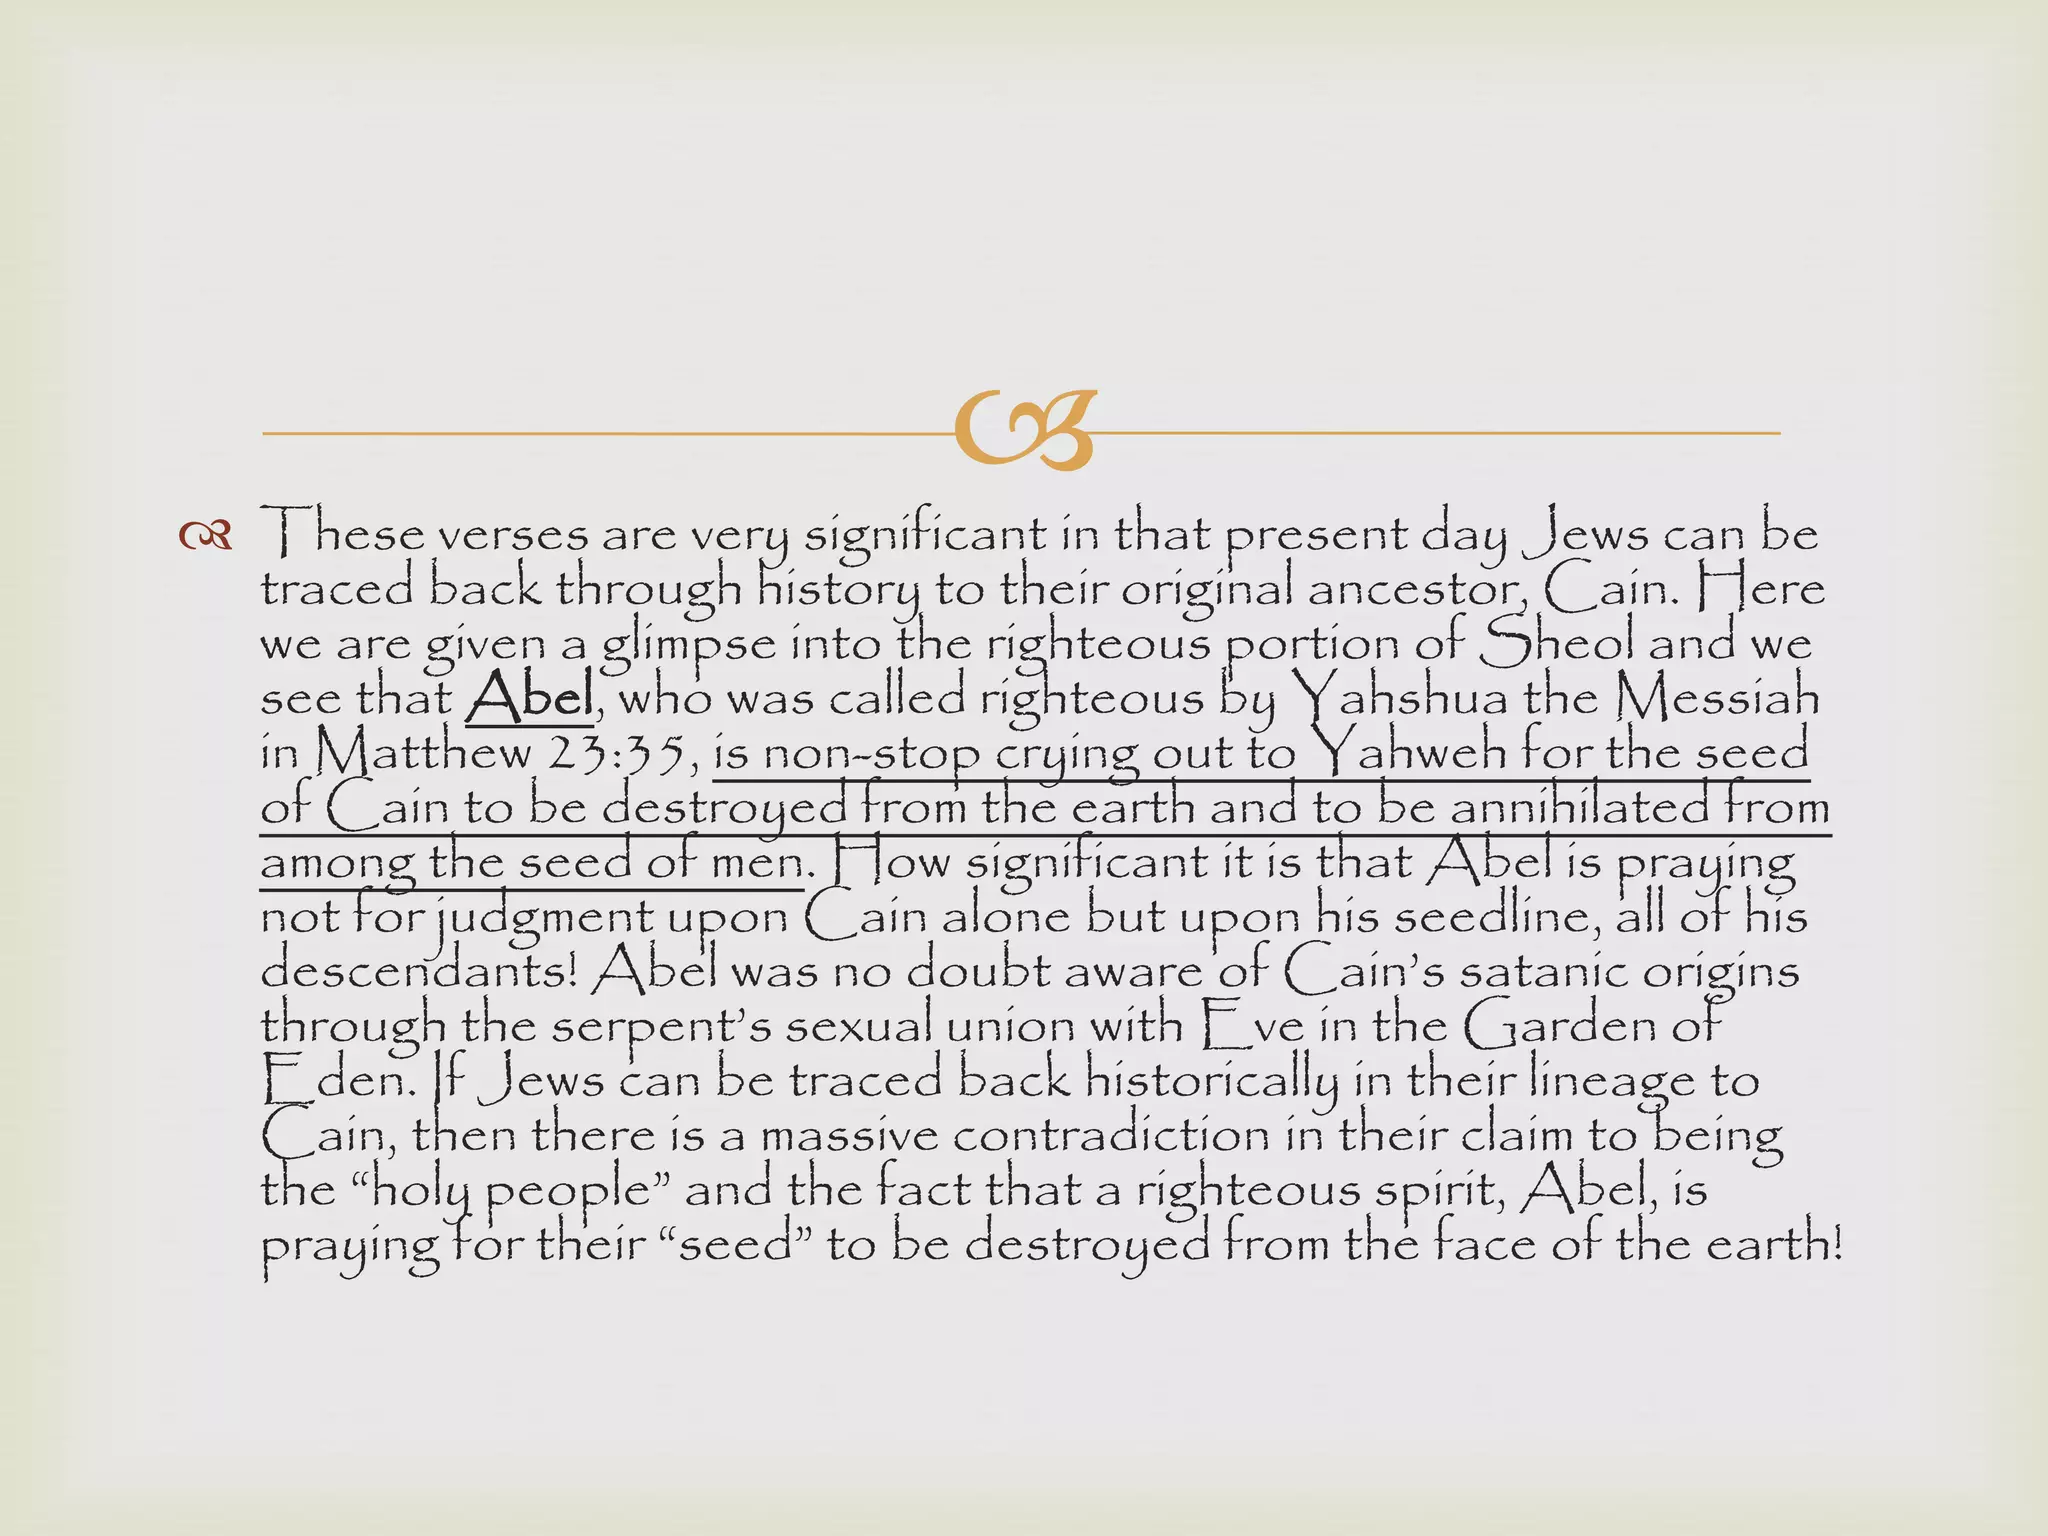 These verses are very significant in that present day Jews can be
traced back through history to their original ancestor, Cain. Here
we are given a glimpse into the righteous portion of Sheol and we
see that Abel, who was called righteous by Yahshua the Messiah
in Matthew 23:35, is non-stop crying out to Yahweh for the seed
of Cain to be destroyed from the earth and to be annihilated from
among the seed of men. How significant it is that Abel is praying
not for judgment upon Cain alone but upon his seedline, all of his
descendants! Abel was no doubt aware of Cain’s satanic origins
through the serpent’s sexual union with Eve in the Garden of
Eden. If Jews can be traced back historically in their lineage to
Cain, then there is a massive contradiction in their claim to being
the “holy people” and the fact that a righteous spirit, Abel, is
praying for their “seed” to be destroyed from the face of the earth!